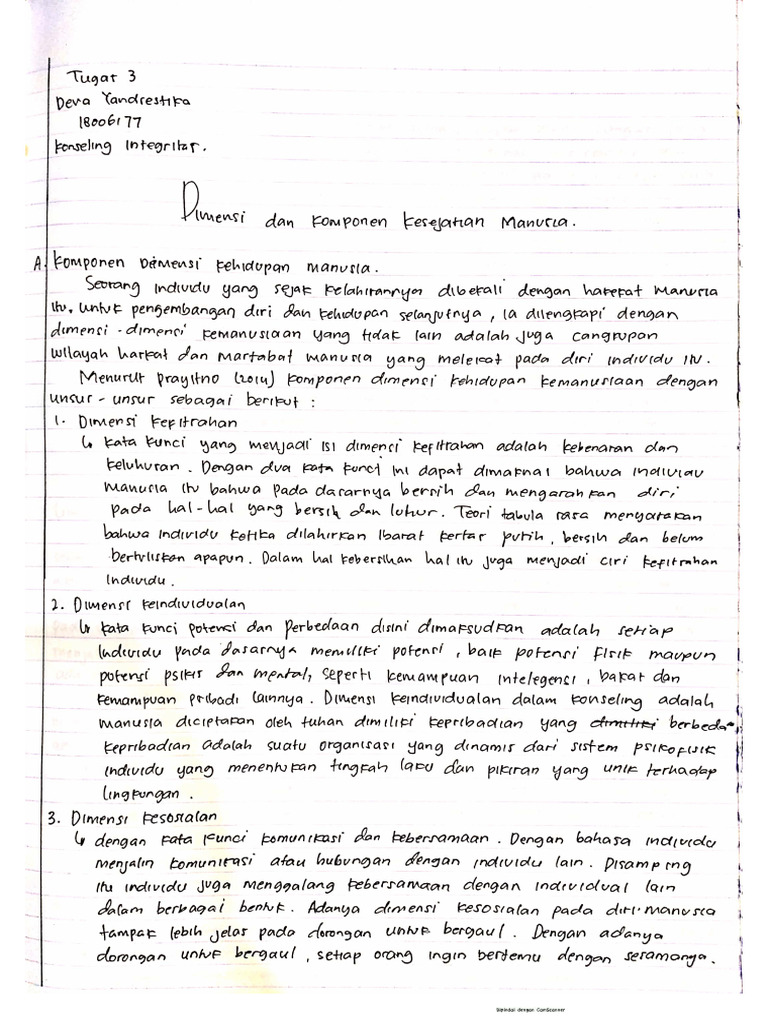 Tugas 3
Deva Yandrestika
18006177
Konseling Integritas.
Dimensi dan Komponen Kesejatian Manusia.
A. Komponen Dimensi Kehidupan manusia.
Seorang individu yang sejak kelahirannya dibekali dengan harkat manusia
itu, untuk pengembangan diri dan kehidupan selanjutnya, ia dilengkapi dengan
dimensi-dimensi kemanusiaan yang tidak lain adalah juga cangrupan
wilayah harkat dan martabat manusia yang melekat pada diri individu itu.
Menurut Prayitno (2014) komponen dimensi kehidupan kemanusiaan dengan
unsur-unsur sebagai berikut :
1. Dimensi Kefitrahan
↳ Kata kunci yang menjadi isi dimensi kefitrahan adalah kebenaran dan
keluhuran. Dengan dua kata kunci ini dapat dimaknai bahwa individu
manusia itu bahwa pada dasarnya bersih dan mengarahkan diri
pada hal-hal yang bersih dan luhur. Teori tabula rasa menyatakan
bahwa individu ketika dilahirkan ibarat kertas putih, bersih dan belum
bertuliskan apapun. Dalam hal kebersihan hal itu juga menjadi ciri kefitrahan
individu.
2. Dimensi keindividualan
↳ Kata kunci potenci dan perbedaan disini dimaksudkan adalah setiap
individu pada dasarnya memiliki potensi, baik potensi fisik maupun
potensi psikis dan mental, seperti kemampuan intelegensi, bakat dan
kemampuan pribadi lainnya. Dimensi keindividualan dalam konseling adalah
manusia diciptakan oleh tuhan dimiliki kepribadian yang dimiliki berbeda
kepribadian adalah suatu organisasi yang dinamis dari sistem psikofisik
individu yang menentukan tingkah laku dan pikiran yang unik terhadap
lingkungan.
3. Dimensi kesosialan
↳ dengan kata kunci komunikasi dan kebersamaan. Dengan bahasa individu
menjalin komunikasi atau hubungan dengan individu lain. Disamping
itu individu juga menggalang kebersamaan dengan individual lain
dalam berbagai bentuk. Adanya dimensi kesosialan pada diri manusia
tampak lebih jelas pada dorongan untuk bergaul. Dengan adanya
dorongan untuk bergaul, setiap orang ingin bertemu dengan sesamanya.
Dipindai dengan CamScanner